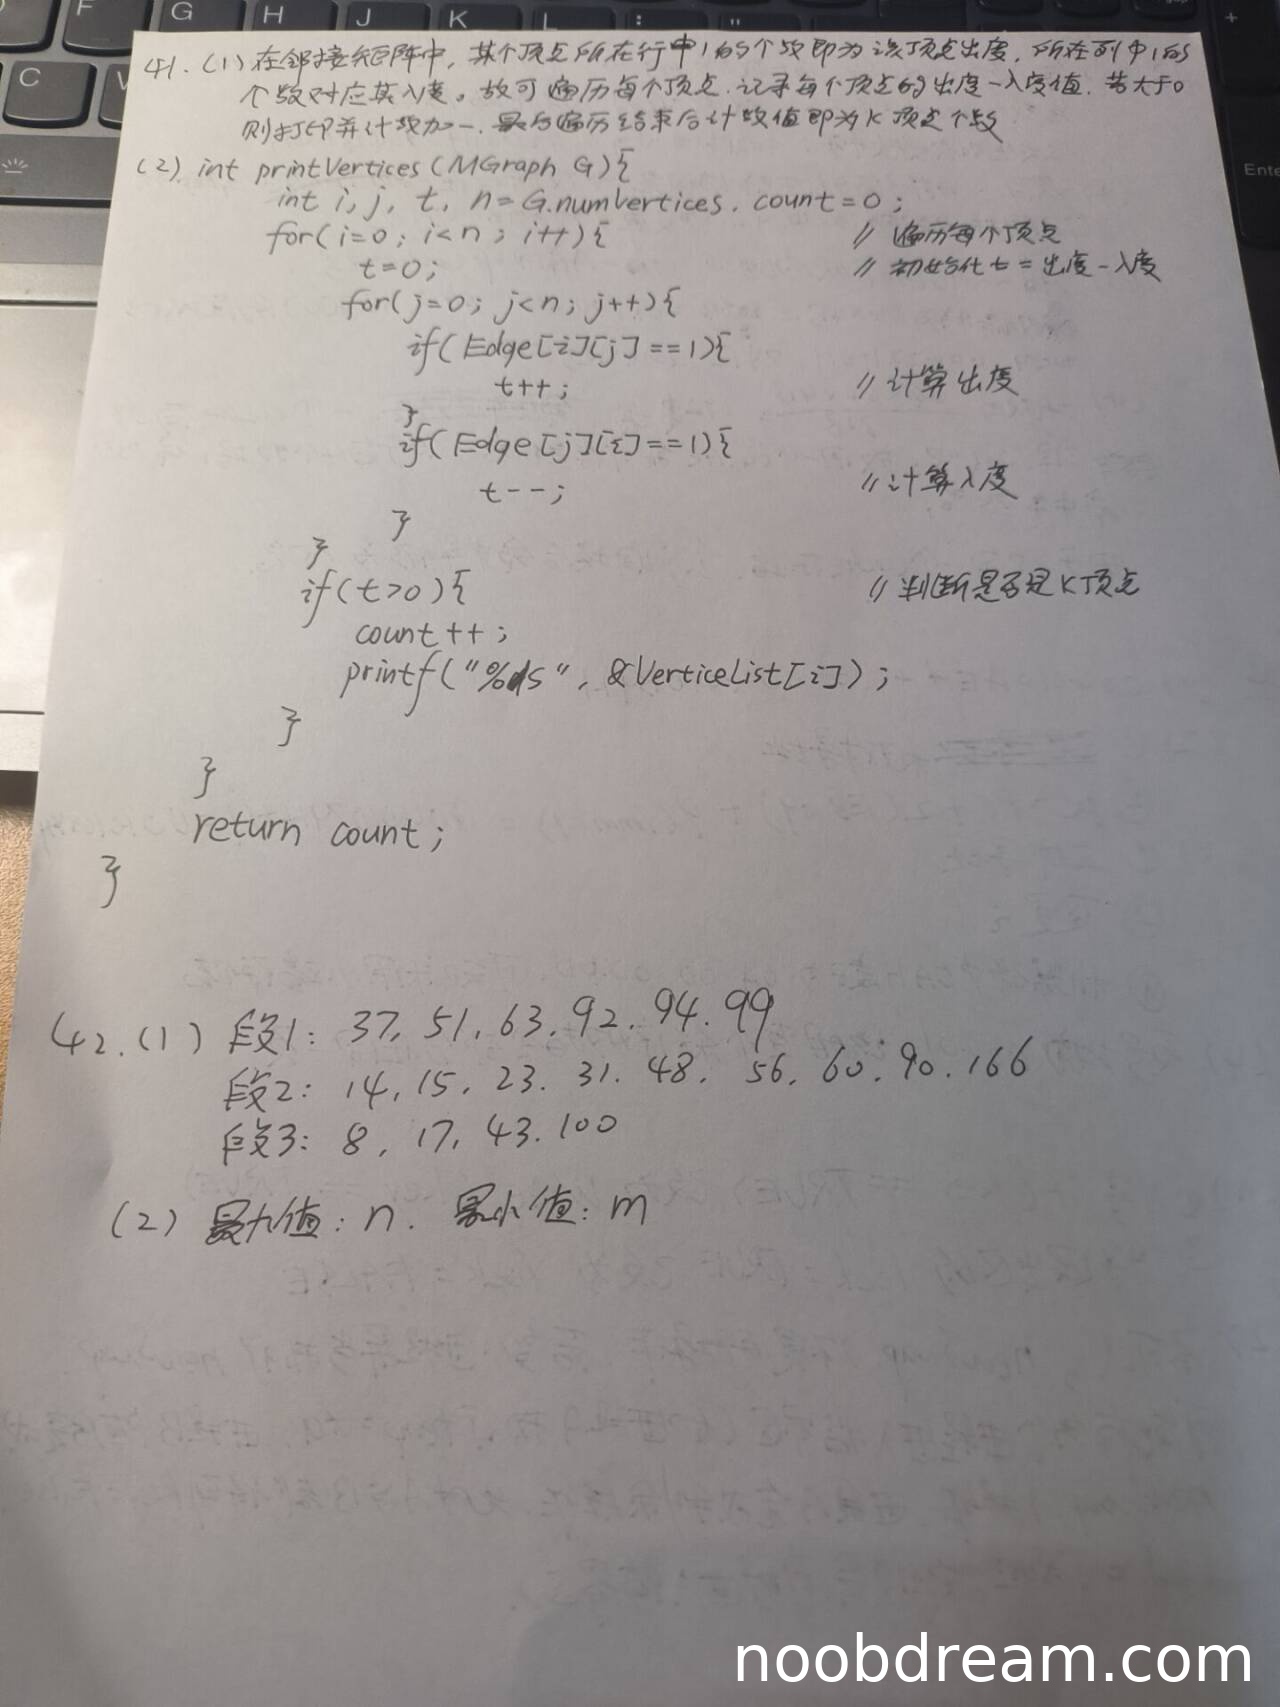 41.(1)在邻接矩阵中,某个顶点所在行中1的个数即为该顶点出度,所在列中1的
个数对应其入度。故可遍历每个顶点,记录每个顶点的出度-入度值,若大于0
则打印并计数加一.最后遍历结束后计数值即为K顶点个数
(2). int printVertices(MGraph G){
int i, j, t, n=G.numVertices, count=0;
for(i=0; i<n; i++){ //遍历每个顶点
t=0; //初始化t=出度-入度
for(j=0; j<n; j++){
if(Edge[i][j]==1){
t++; //计算出度
}
if(Edge[j][i]==1){
t--; //计算入度
}
}
if(t>0){ //判断是否是K顶点
count++;
printf("%s", &VerticeList[i]);
}
}
return count;
}
42.(1)段1: 37, 51, 63, 92, 94, 99
段2: 14, 15, 23, 31, 48, 56, 60, 90, 166
段3: 8, 17, 43, 100
(2)最大值: n. 最小值: m
C
F
G
H
J
K
L
:
"
+
Ente
noobdream.com